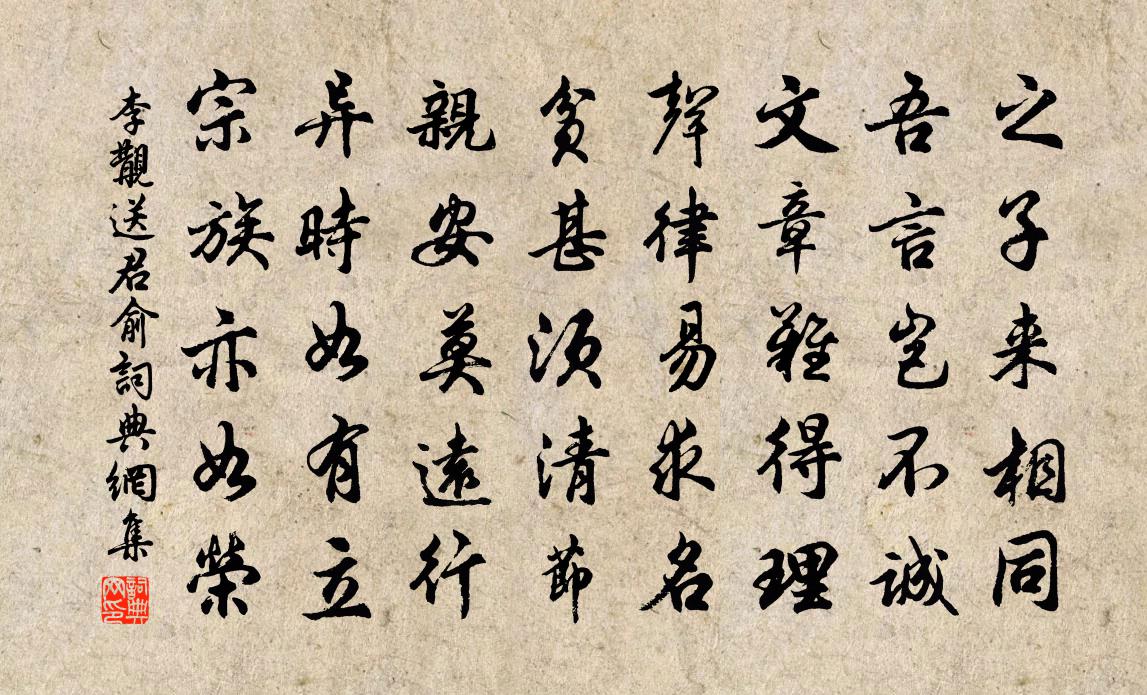 之子来相同
吾言岂不诚
文章難得理
聲律易求名
貧甚須清節
親安莫遠行
异時如有立
宗族亦如榮
李覯送君俞詞典網集
詞典網印